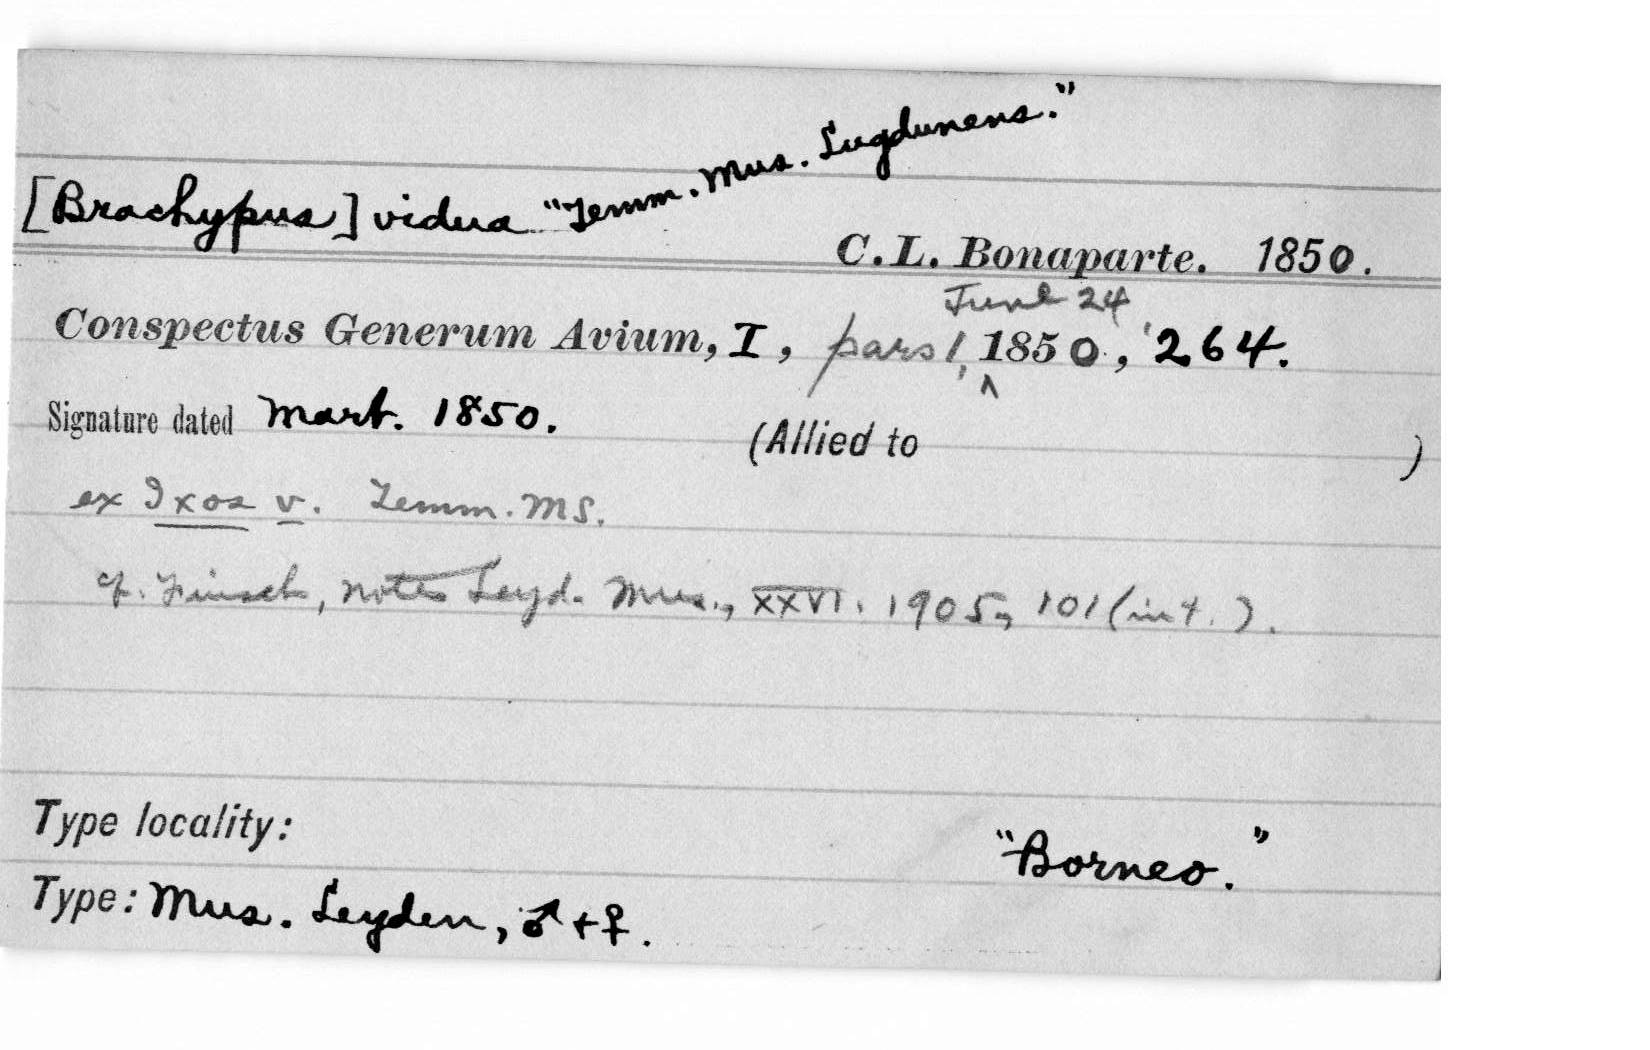 [Brachypus] vidua "Temm. Mus. Lugdunens."
C. L. Bonaparte. 1850.
June 24
Conspectus Generum Avium, I, pars 1, ^ 1850, 264.
Signature dated Mart. 1850.
(Allied to )
ex Ixos v. Temm. MS.
cf. Finsch, Notes Leyd. Mus., XXVI. 1905, 101 (int.).
Type locality:
"Borneo."
Type: Mus. Leyden, ♂ + ♀.